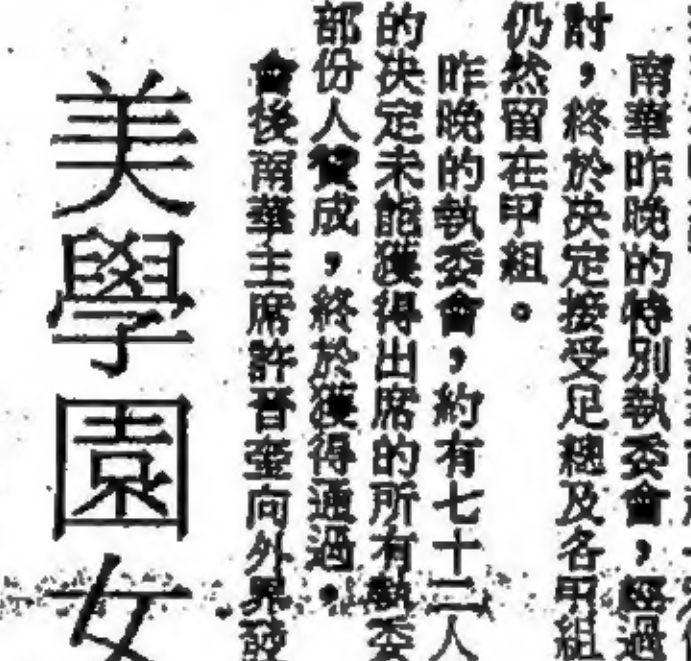 南華昨晚的特別執委會，經過
討，終於决定接受足總及各甲組
仍然留在甲組。
昨晚的執委會，約有七十二人
的决定未能獲得出席的所有執委
部份人贊成，終於獲得通過。
會後南華主席許晉奎向外界發
美學園女